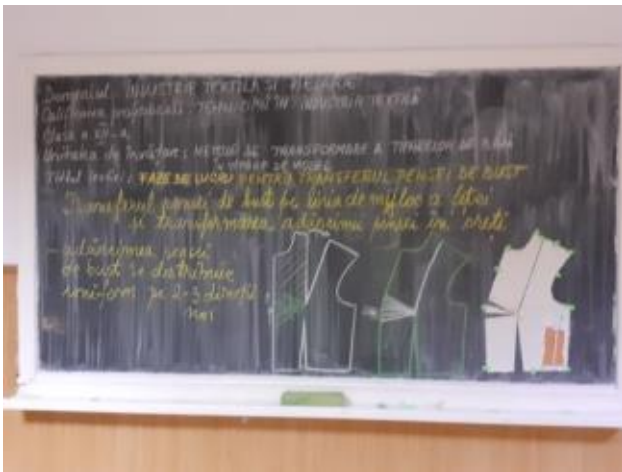 Domeniul: INDUSTRIE TEXTILĂ ȘI PIELĂRIE
Calificarea profesională: TEHNICIAN ÎN INDUSTRIA TEXTILĂ
Clasa a XII-a
Unitatea de învățare: METODE DE TRANSFORMARE A TIPARELOR DE BAZĂ
ÎN TIPARE DE MODEL
Titlul lecției: FAZE DE LUCRU PENTRU TRANSFERUL PENSEI DE BUST
Transferul pensei de bust pe linia de mijloc a feței
și transformarea adâncimii pensei în creți
- adâncimea pensei
de bust se distribuie
uniform pe 2-3 direcții
noi